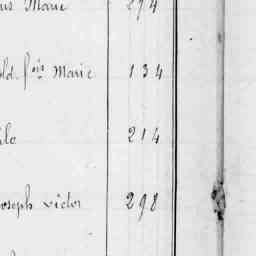 Marie 274
fois Marie 134
214
oseph victor 298